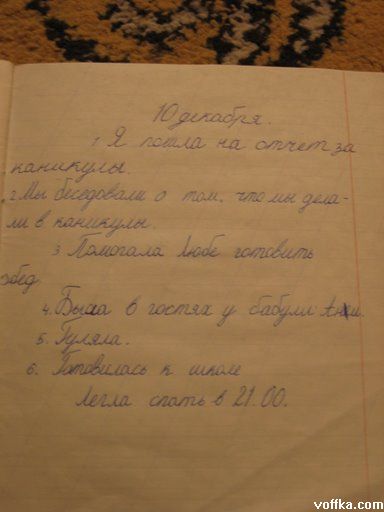 10 декабря.
1 Я пошла на отчет за
каникулы.
2. Мы беседовали о том, что мы дела-
ли в каникулы.
3 Помогала Любе готовить
обед
4. Была в гостях у бабули Ани.
5. Гуляла.
6. Готовилась к школе
Легла спать в 21.00.
voffka.com